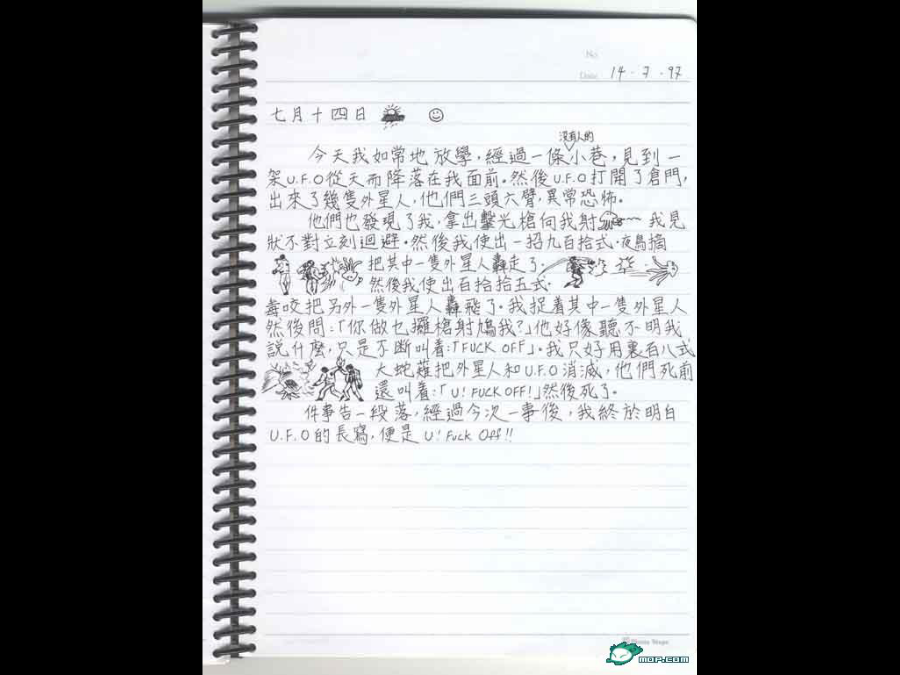 No
Date 14 - 7 - 97
七月十四日
沒有人的
今天我如常地放學，經過一條小巷，見到一
架U.F.O從天而降落在我面前。然後U.F.O打開了倉門，
出來了幾隻外星人，他們三頭六臂，異常恐怖。
他們也發現了我，拿出擊光槍向我射 我見
狀不對立刻迴避。然後我使出一招九百拾式·夜鳥摘
把其中一隻外星人轟走了；
然後我使出百拾拾五式·
毒咬把另外一隻外星人轟飛了。我捉着其中一隻外星人
然後問：「你做乜攞槍射鳩我？」他好像聽不明我
說什麼，只是不斷叫着：「FUCK OFF」。我只好用裏百八式
大蛇薙把外星人和U.F.O消滅，他們死前
還叫着：「U! FUCK OFF!」然後死了。
件事告一段落，經過今次一事後，我終於明白
U.F.O的長寫，便是 U! Fuck Off!!
MOP.COM